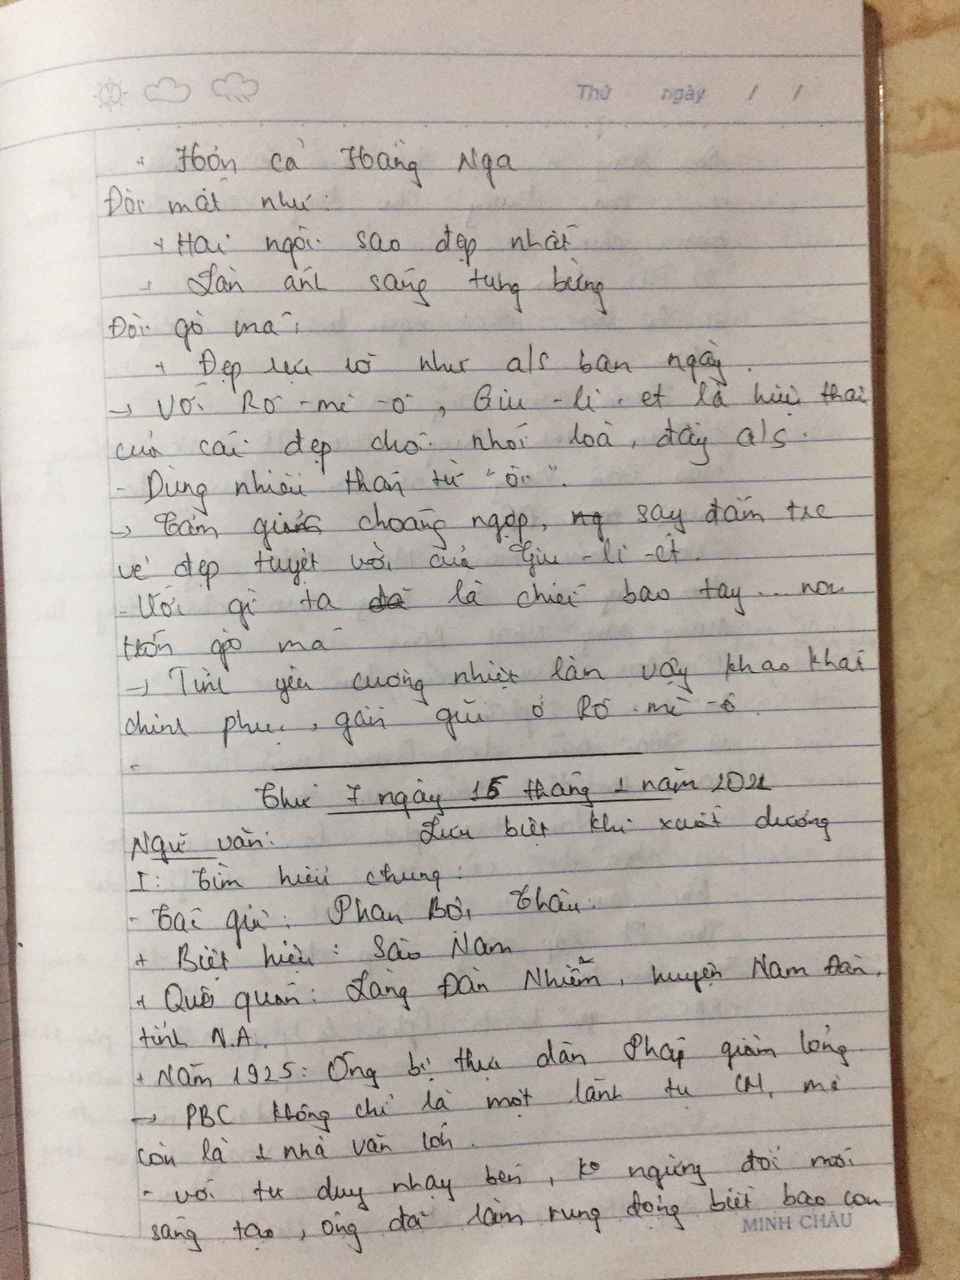 Thứ ngày / /
+ Hơn cả Hoàng Nga
Đôi mắt như:
+ Hai ngôi sao đẹp nhất
+ Làn ánh sáng tưng bừng
Đôi gò má:
+ Đẹp rực rỡ như a/s ban ngày.
→ Với Rô-mê-ô, Giu-li-et là hiện thai
của cái đẹp chói nhói loà, đầy a/s.
- Dùng nhiều thán từ "ôi".
→ Cảm giác choáng ngợp, say đắm trc
vẻ đẹp tuyệt vời của Giu-li-ét.
- Ước gì ta là chiếc bao tay... nou
Hôn gò má
→ Tình yêu cuồng nhiệt làn vậy khao khát
chinh phục, gần gũi ở Rô-mê-ô.
Thứ 7 ngày 15 tháng 1 năm 2022
Ngữ văn: Lưu biệt khi xuất dương
I: Tìm hiểu chung:
- Tác giả: Phan Bội Châu.
+ Biệt hiệu: Sào Nam
+ Quê quán: Làng Đan Nhiễm, huyện Nam Đàn,
tỉnh N.A.
+ Năm 1925: Ông bị thực dân Pháp giam lỏng
→ PBC không chỉ là một lãnh tụ CM, mà
còn là 1 nhà văn lớn.
- với tư duy nhạy bén, ko ngừng đổi mới
sáng tạo, ông đã làm rung động biết bao con
MINH CHÂU